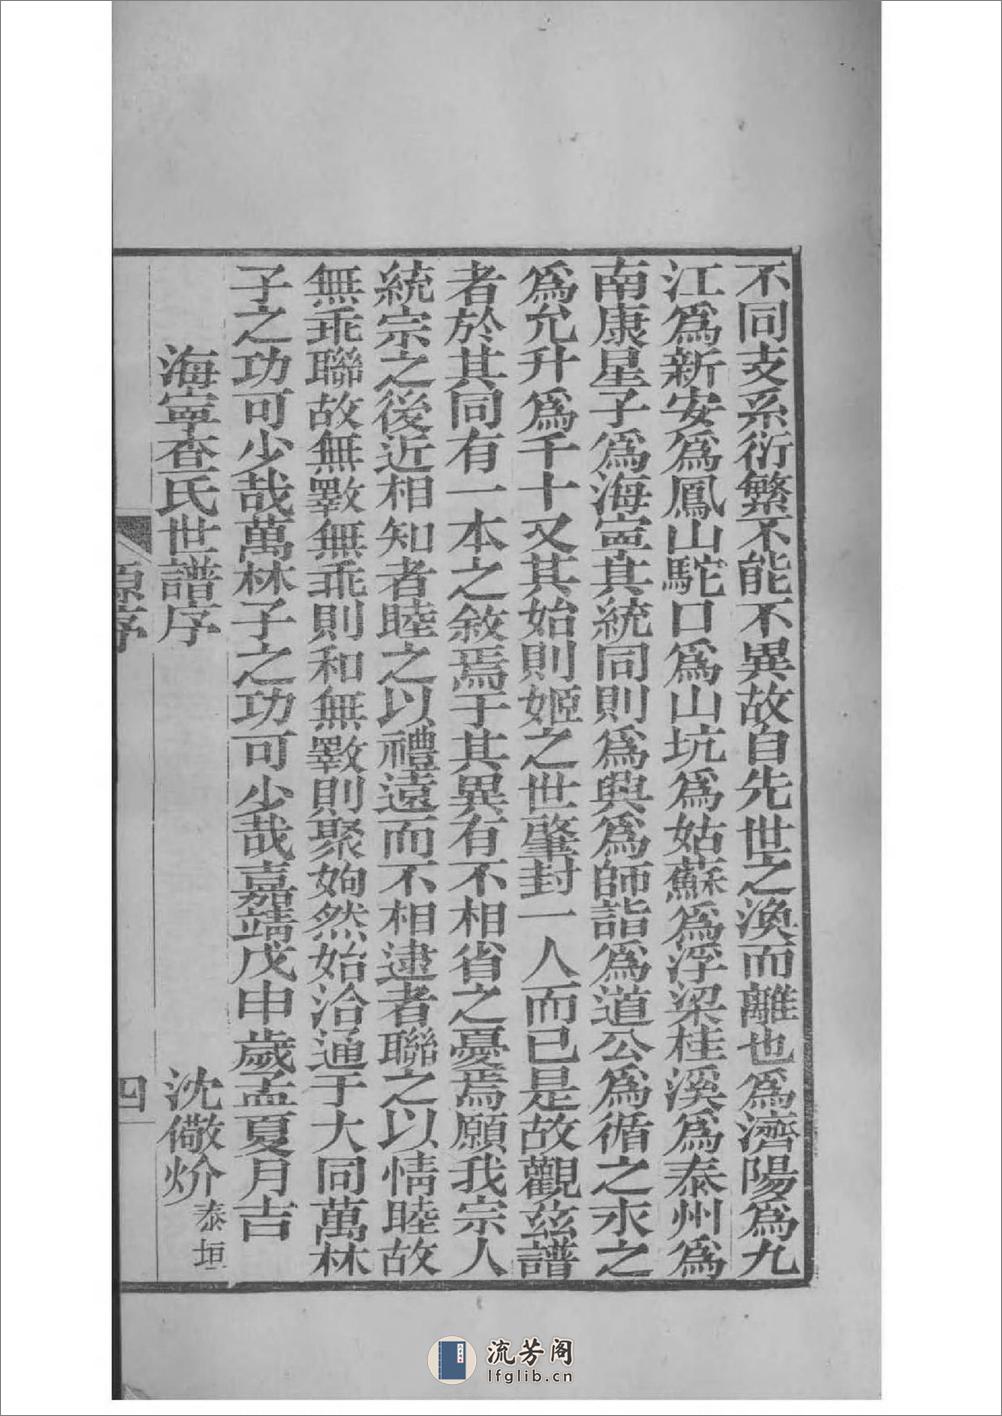 不同支系衍繁不能不異故自先世之渙而離也爲濟陽爲九
江爲新安爲鳳山駝口爲山坑爲姑蘇爲浮梁桂溪爲泰州爲
南康星子爲海寧其統同則爲興爲師詣爲道公爲循之永之
爲允升爲千十又其始則姬之世肇封一人而已是故觀茲譜
者於其同有一本之敘焉于其異有不相省之憂焉願我宗人
統宗之後近相知者睦之以禮遠而不相逮者聯之以情睦故
無乖聯故無斁無乖則和無斁則聚姁然始洽通于大同萬林
子之功可少哉萬林子之功可少哉嘉靖戊申歲孟夏月吉
海寧查氏世譜序
沈儆炌泰垣
原序
四
流芳阁
lfglib.cn